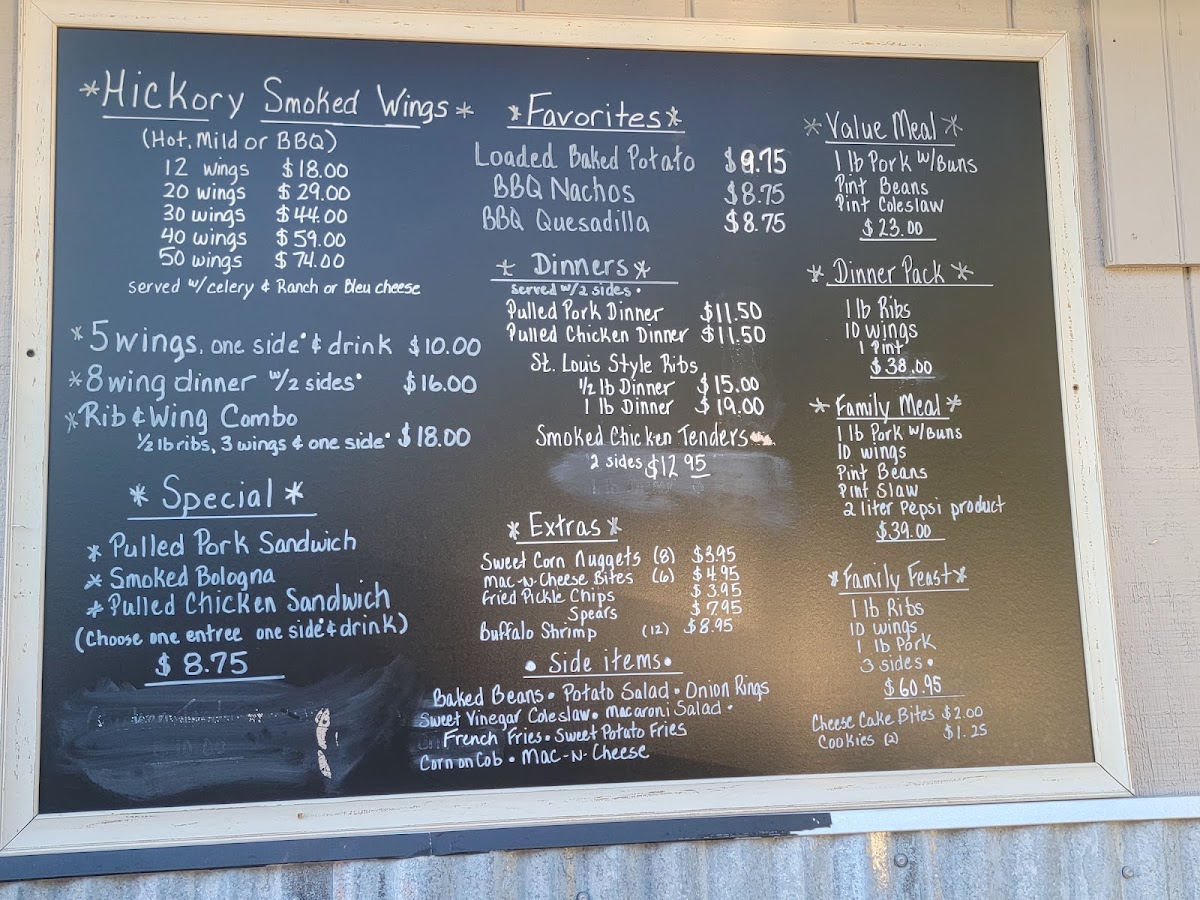 *Hickory Smoked Wings*
(Hot, Mild or BBQ)
12 wings $18.00
20 wings $29.00
30 wings $44.00
40 wings $59.00
50 wings $74.00
served w/celery & Ranch or Bleu cheese
*5 wings, one side• & drink $10.00
*8 wing dinner w/2 sides• $16.00
*Rib & Wing Combo
½ lb ribs, 3 wings & one side• $18.00
*Special*
* Pulled Pork Sandwich
* Smoked Bologna
* Pulled Chicken Sandwich
(Choose one entree one side• & drink)
$8.75
*Favorites*
Loaded Baked Potato $9.75
BBQ Nachos $8.75
BBQ Quesadilla $8.75
* Dinners*
served w/2 sides•
Pulled Pork Dinner $11.50
Pulled Chicken Dinner $11.50
St. Louis Style Ribs
½ lb Dinner $15.00
1 lb Dinner $19.00
Smoked Chicken Tenders
2 sides $12.95
*Extras*
Sweet Corn Nuggets (8) $3.95
Mac-N-Cheese Bites (6) $4.95
Fried Pickle Chips $3.95
Spears $7.95
Buffalo Shrimp (12) $8.95
• Side items•
Baked Beans • Potato Salad • Onion Rings
Sweet Vinegar Coleslaw • Macaroni Salad •
French Fries • Sweet Potato Fries
Corn on Cob • Mac-N-Cheese
*Value Meal*
1 lb Pork w/Buns
Pint Beans
Pint Coleslaw
$23.00
* Dinner Pack *
1 lb Ribs
10 wings
1 Pint
$38.00
*Family Meal*
1 lb Pork w/Buns
10 wings
Pint Beans
Pint Slaw
2 liter Pepsi product
$39.00
*Family Feast*
1 lb Ribs
10 wings
1 lb Pork
3 sides•
$60.95
Cheese Cake Bites $2.00
Cookies (2) $1.25